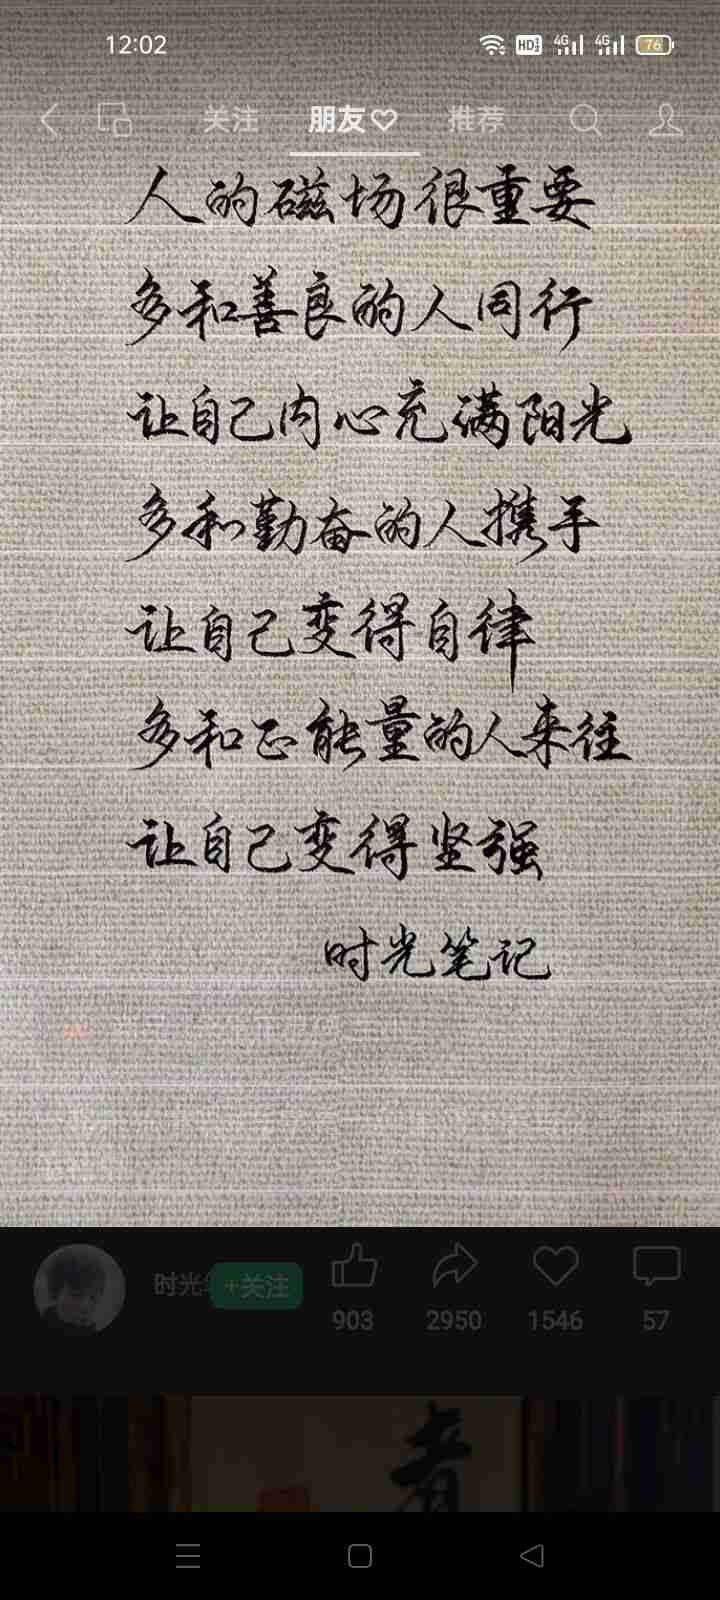 12:02
HD 4G 4G 76
关注 朋友 推荐
人的磁场很重要
多和善良的人同行
让自己内心充满阳光
多和勤奋的人携手
让自己变得自律
多和正能量的人来往
让自己变得坚强
时光笔记
时光 +关注
903 2950 1546 57
者